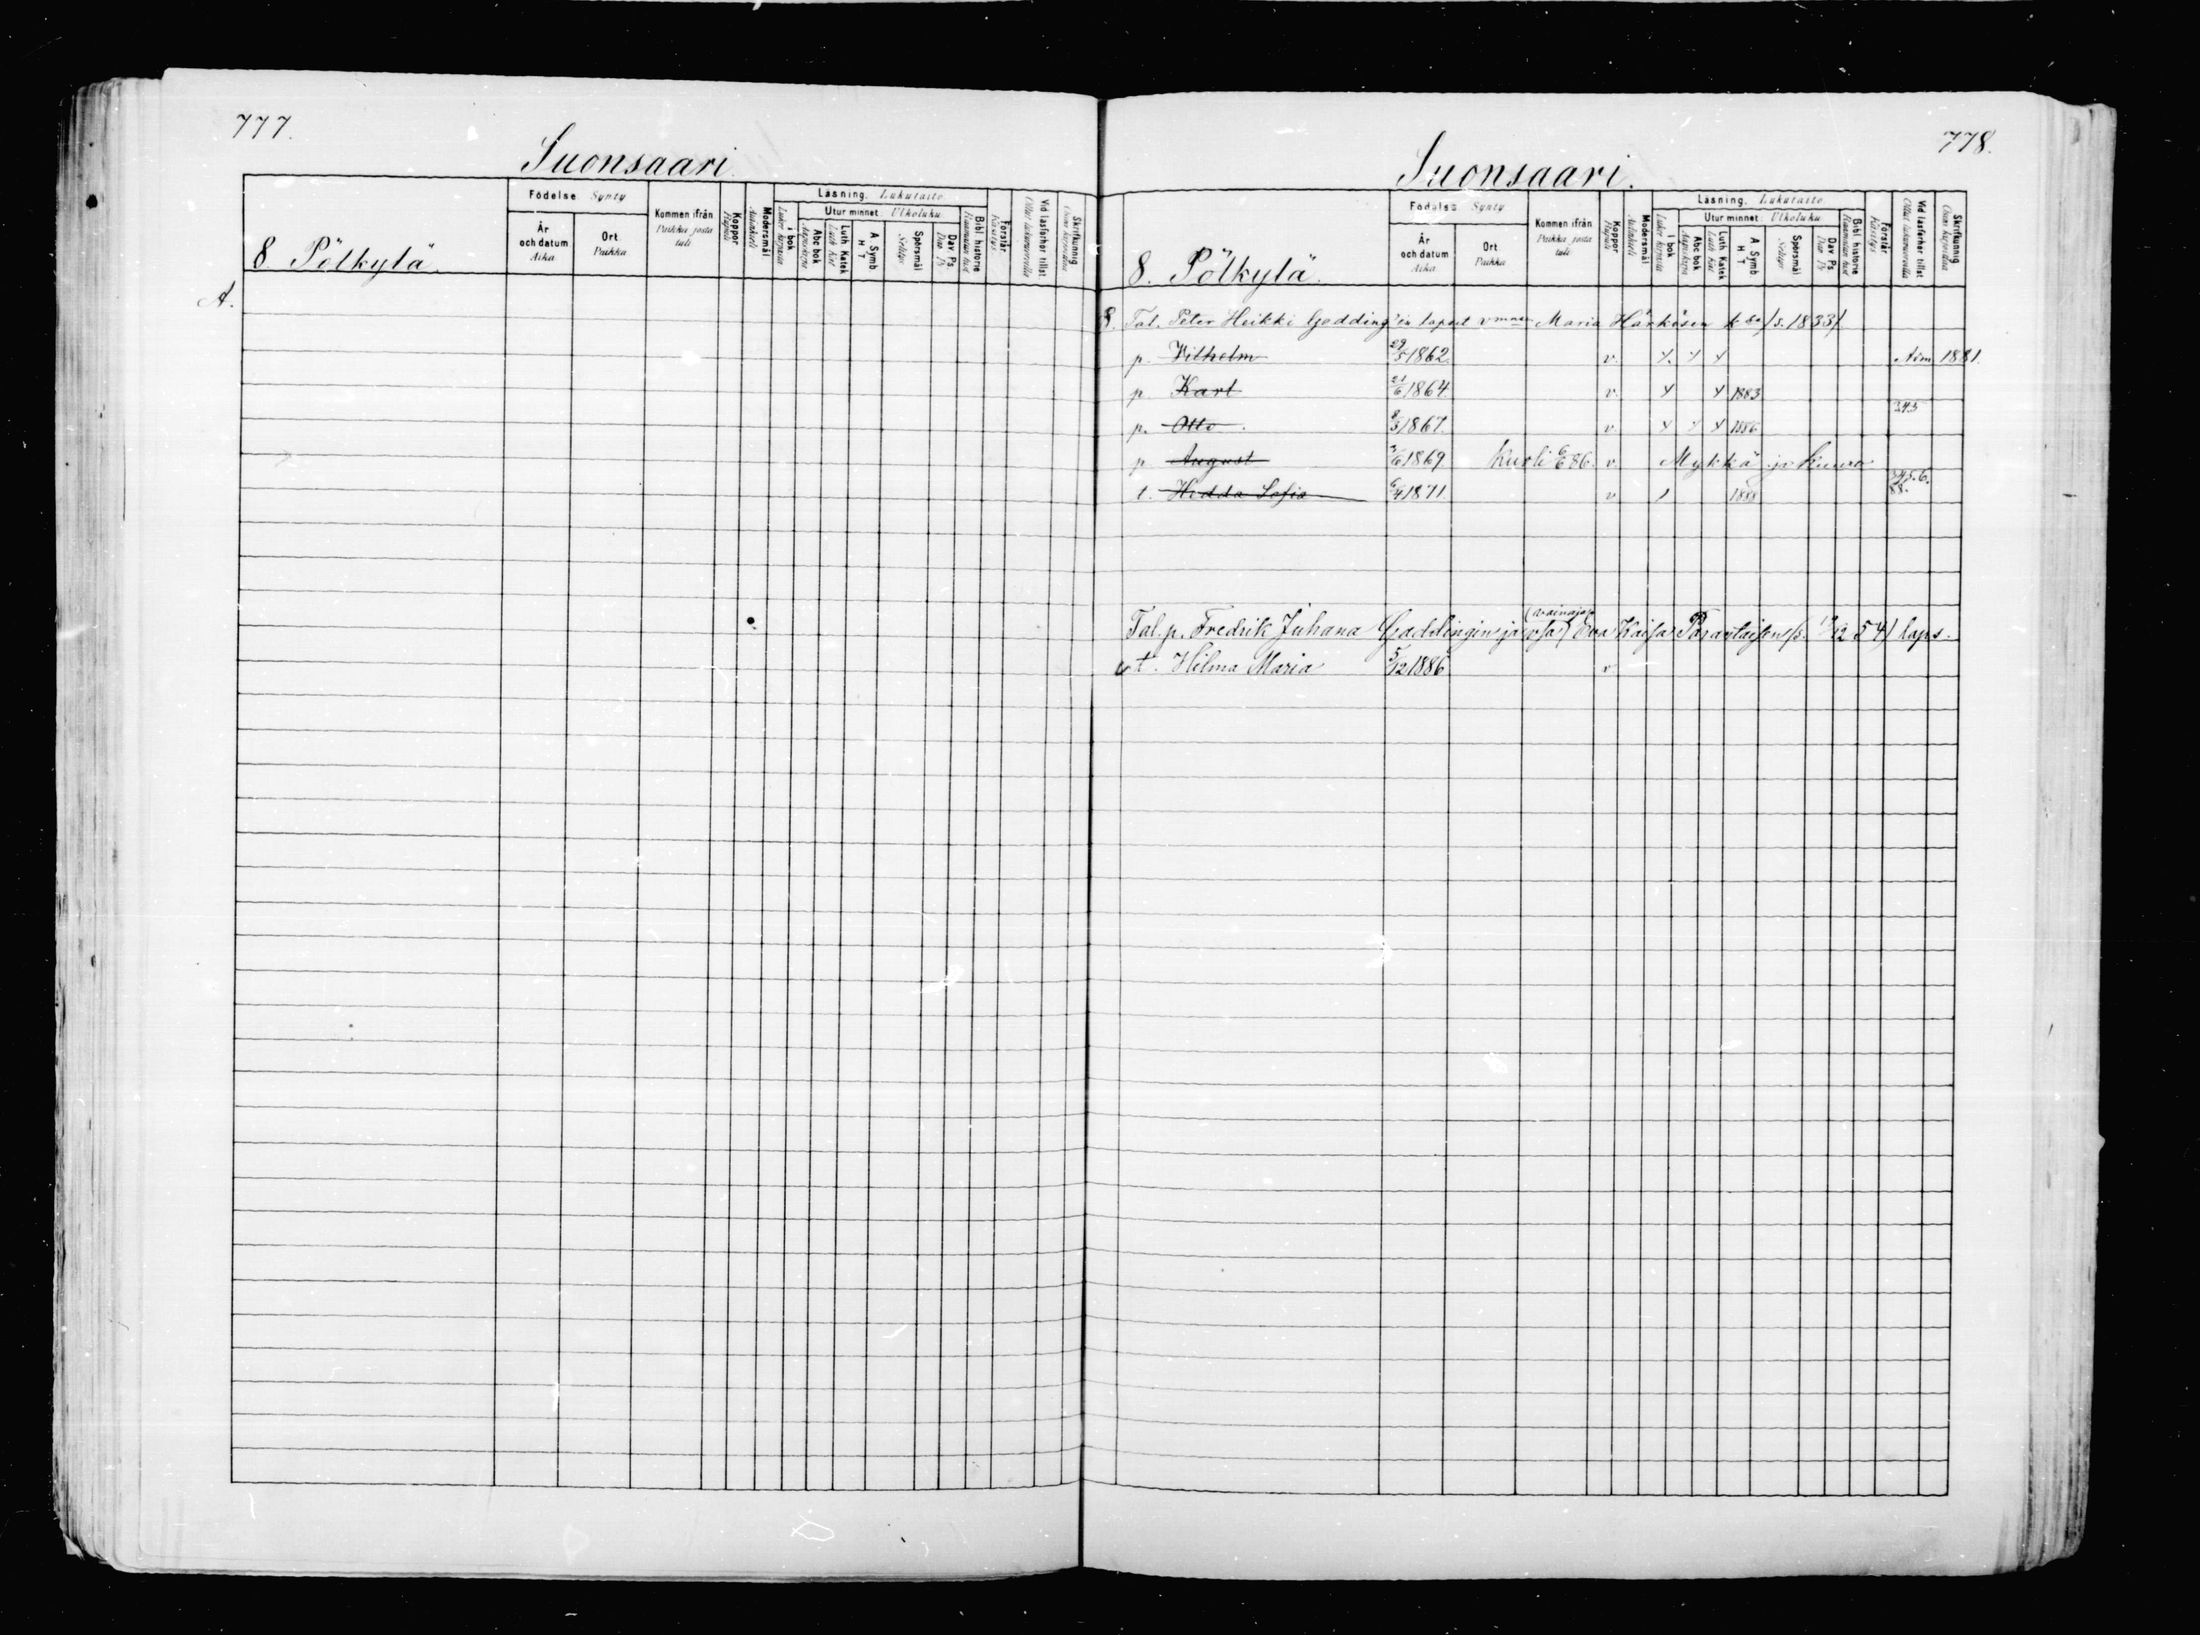 777.
Suonsaari.
8 Pölkylä.
Födelse Synty
År och datum Aika
Ort Paikka
Kommen ifrån Paikka josta tuli
Koppor Rupuli
Modersmål Äidinkieli
Läsning. Lukutaito
Luker kirjasta i bok
Utur minnet: Ulkoluku
Abc bok Aapiskirja
Luth Katek Luth Kat
A Symb H T
Spörsmål Selitys
Dav Ps Dav Ps
Bibl historie Raamatun hist
Förstår Käsitys
Vid läsförhör tillst Ollut lukuluvuilla
Skrifkunnig Osaa kirjoittaa
A.
778.
Suonsaari.
8. Pölkylä.
Födelse Synty
År och datum Aika
Ort Paikka
Kommen ifrån Paikka josta tuli
Koppor Rupuli
Modersmål Äidinkieli
Läsning. Lukutaito
i bok
Utur minnet: Ulkoluku
Abc bok Aapiskirja
Luth Katek Luth Kat
A Symb H T
Spörsmål Selitys
Dav Ps Dav Ps
Bibl historie Raamatun hist
Förstår Käsitys
Vid läsförhör tillst
Skrifkunnig Osaa kirjoittaa
8. Tal. Peter Heikki Gadding'in lapset Maria Härkösen /s. 1833/
p. Wilhelm 29/5 1862. v. 1881.
p. Karl 21/6 1864. v. 1883
p. Otto. 8/3 1867. v. 1886 345
p. August 1869 Kuoli 6/6 86. v. Mykkä ja kuuro
t. Hedda Sofia 6/4 1871. v 1888 345.6. 88.
(vainaja)
Tal. p. Fredrik Juhana Gaddingin ja Eva Kaisa 12 54) laps.
t. Hilma Maria 5/12 1886 v